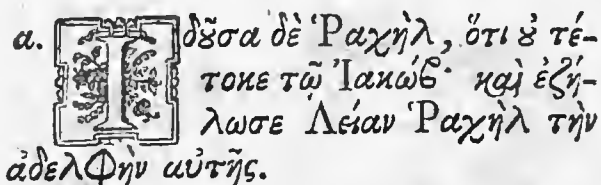 α. Ιδȣ͂σα δὲ Ῥαχὴλ, ὅτι ȣ̓ τέ-
τοκε τῶ Ἰακώβ· καὶ ἐζή-
λωσε Λείαν Ῥαχὴλ τὴν
ἀδελφὴν αὐτῆς.